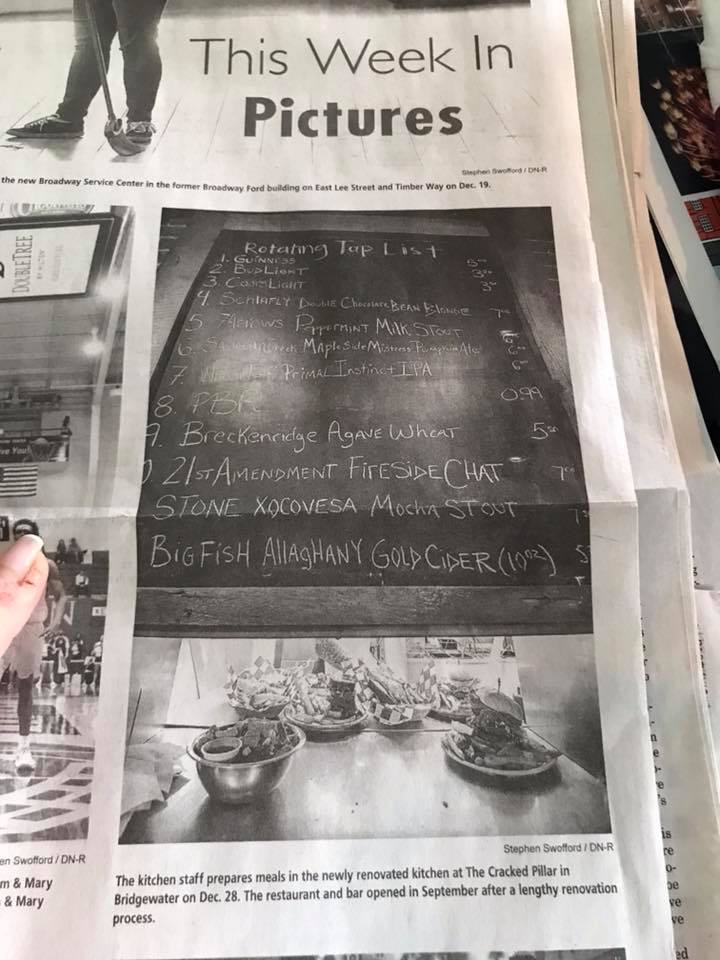 This Week In
Pictures
Stephen Swofford / DN-R
the new Broadway Service Center in the former Broadway Ford building on East Lee Street and Timber Way on Dec. 19.
DOUBLETREE
BY HILTON
Rotating Tap List
1. GUINNESS 5
2. BUD LIGHT 3
3. COORS LIGHT 3
4. SCHLAFLY DOUBLE CHOCOLATE BEAN BLONDE 7
5. PEPPERMINT MILK STOUT 6
6. MAPLE SIDE MISTRESS PUMPKIN ALE 6
7. PRIMAL INSTINCT IPA 6
8. PBR 0.99
9. Breckenridge AGAVE WHEAT 5
21ST AMENDMENT FIRESIDE CHAT 7
STONE XOCOVESA MOCHA STOUT 7
BIG FISH ALLAGHANY GOLD CIDER (10oz) 5
Stephen Swofford / DN-R
en Swofford / DN-R
m & Mary
& Mary
The kitchen staff prepares meals in the newly renovated kitchen at The Cracked Pillar in
Bridgewater on Dec. 28. The restaurant and bar opened in September after a lengthy renovation
process.